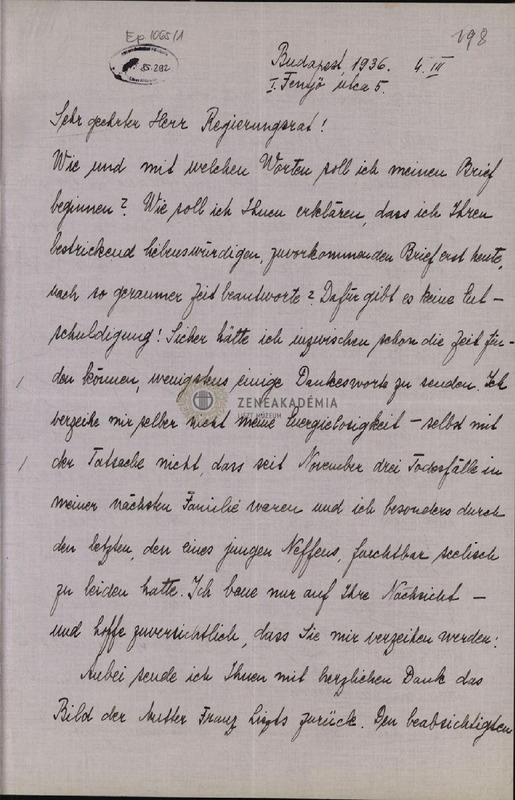 Ep 1065/1
198
85.292
Budapest, 1936. 4. III
I. Fenyö utca 5.
Sehr geehrter Herr Regierungsrat!
Wie und mit welchen Worten soll ich meinen Brief
beginnen? Wie soll ich Ihnen erklären, dass ich Ihren
bestrickend liebenswürdigen, zuvorkommenden Brief erst heute,
nach so geraumer Zeit beantworte? Dafür gibt es keine Ent-
schuldigung! Sicher hätte ich inzwischen schon die Zeit fin-
den können, wenigstens einige Dankesworte zu senden. Ich
verzeihe mir selber nicht meine Energielosigkeit – selbst mit
ZENEAKADÉMIA
LISZT MÚZEUM
der Tatsache nicht, dass seit November drei Todesfälle in
meiner nächsten Familie waren und ich besonders durch
den letzten, den eines jungen Neffens, furchtbar seelisch
zu leiden hatte. Ich baue nur auf Ihre Nachsicht –
und hoffe zuversichtlich, dass Sie mir verzeihen werden!
Anbei sende ich Ihnen mit herzlichen Dank das
Bild der Mutter Franz Liszts zurück. Den beabsichtigten